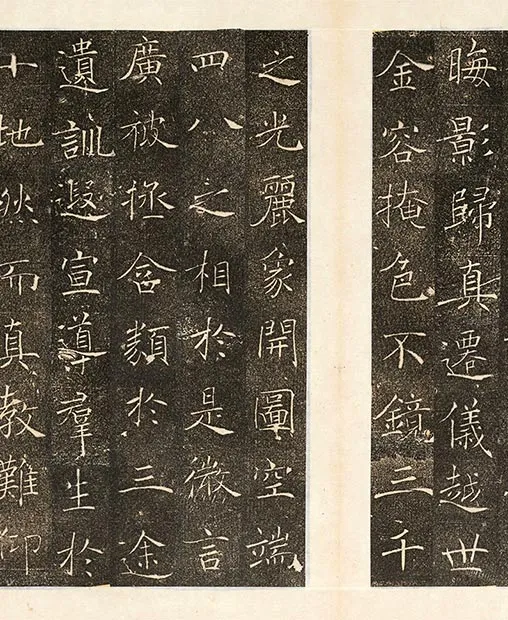 晦影歸真遷儀越世
金容掩色不鏡三千
之光麗象開圖空端
四八之相於是微言
廣被拯含類於三途
遺訓遐宣導羣生於
十地然而真教難仰